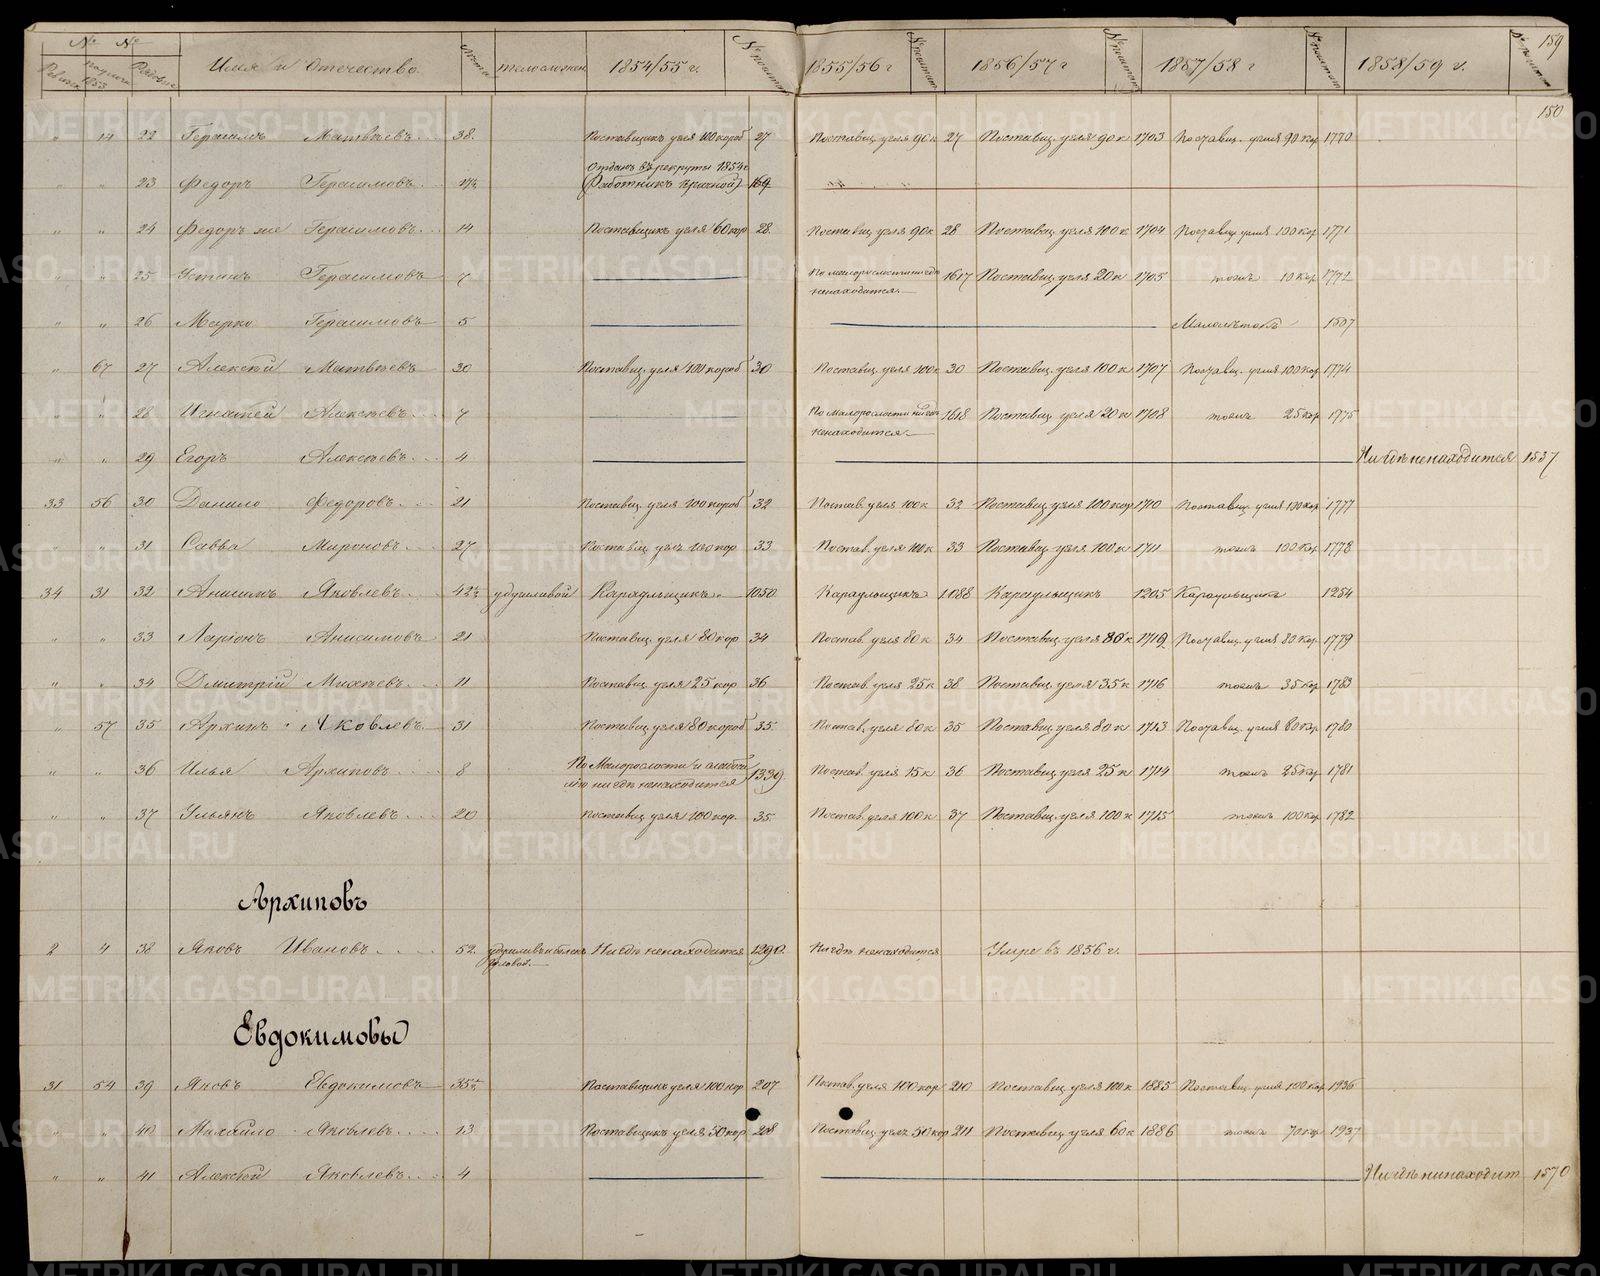 159
№ № Имя и Отечество. 1854/55 г. 1855/56 г 1856/57 г 1857/58 г 1858/59 г.
150
" 14 22 Герасимъ Матвѣевъ 38. Поставщикъ угля 100 короб 27 Поставщ. угля 90 к 27 Поставщ. угля 90 к 1703 Поставщ. угля 90 кор 1770
Отданъ въ рекруты 1854 г
" " 23 Федоръ Герасимовъ (Работникъ кричной) 169
" " 24 Федоръ же Герасимовъ 14 Поставщикъ угля 60 кор 28 Поставщ угля 90 к 28 Поставщ. угля 100 к 1704 Поставщ. угля 100 кор 1771
" " 25 Герасимовъ 7 По малорослости нигдѣ 1617 Поставщ. угля 20 к 1705 тожъ 10 кор 1772
ненаходится.
" " 26 Марко Герасимовъ 5 Малолѣтокъ 1507
" 67 27 Алексѣй Матвѣевъ 30 Поставщ. угля 100 короб 30 Поставщ. угля 100 к 30 Поставщ. угля 100 к 1707 Поставщ. угля 100 кор 1774
" " 28 Игнатей Алексѣевъ 7 По малорослости нигдѣ 1618 Поставщ угля 20 к 1708 тожъ 25 кор 1775
ненаходится.
" " 29 Егоръ Алексѣевъ 4 Нигдѣ ненаходится 1537
33 56 30 Данило Федоровъ 21 Поставщ. угля 100 короб 32 Постав. угля 100 к 32 Поставщ угля 100 кор 1710 Поставщ. угля 100 кор 1777
" " 31 Савва Мироновъ 27 Поставщ угля 100 кор 33 Постав. угля 100 к 33 Поставщ угля 100 к 1711 тожъ 100 кор 1778
34 31 32 Анисимъ Яковлевъ удушливой Караульщикъ 1050 Караульщикъ 1088 Караульщикъ 1205 Караульщикъ 1254
" " 33 Ларіонъ Анисимовъ 21 Поставщ. угля 80 кор 34 Постав. угля 80 к 34 Поставщ. угля 80 к 1712 Поставщ. угля 80 кор 1779
" " 34 Дмитрій Михѣевъ 11 Поставщ. угля 25 кор 36 Постав. угля 25 к 38 Поставщ. угля 35 к 1716 тожъ 35 кор 1783
" 57 35 Архипъ Яковлевъ 31 Поставщ. угля 80 короб 35 Постав. угля 80 к 35 Поставщ угля 80 к 1713 Поставщ. угля 80 кор 1780
" " 36 Илья Архиповъ 8 По Малорослости и слабости 1339 Постав. угля 15 к 36 Поставщ угля 25 к 1714 тожъ 25 кор 1781
нигдѣ ненаходится
" " 37 Ульянъ Яковлевъ 20 Поставщ угля 100 кор. 35 Постав. угля 100 к 37 Поставщ. угля 100 к 1715 тожъ 100 кор 1782
Архиповъ
2 4 38 Яковъ Ивановъ 52. Нигдѣ ненаходится 1290. Нигдѣ ненаходится Умре въ 1856 г.
головой.
Евдокимовы
31 54 39 Яковъ Евдокимовъ Поставщикъ угля 100 кор 207 Постав. угля 100 кор 210 Поставщ угля 100 к 1885 Поставщ. угля 100 кор 1936
" " 40 Михайло Яковлевъ 13 Поставщикъ угля 50 кор 208 Поставщ угля 50 кор 211 Поставщ угля 60 к 1886 тожъ 70 кор 1937
" " 41 Алексѣй Яковлевъ 4 Нигдѣ ненаходит 1570
METRIKI.GASO-URAL.RU